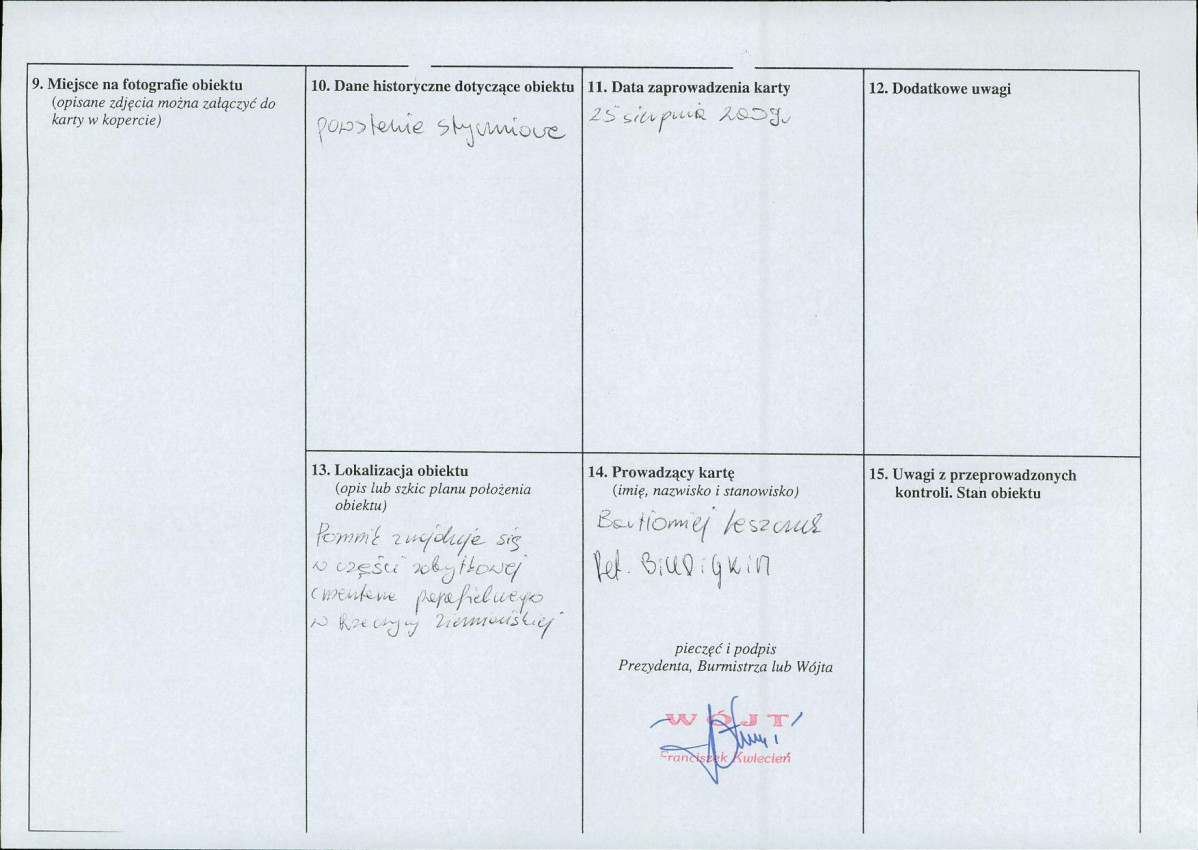 9. Miejsce na fotografie obiektu
(opisane zdjęcia można załączyć do
karty w kopercie)
10. Dane historyczne dotyczące obiektu
powstanie styczniowe
11. Data zaprowadzenia karty
25 sierpnia 2009r
12. Dodatkowe uwagi
13. Lokalizacja obiektu
(opis lub szkic planu położenia
obiektu)
Pomnik znajduje się
w części zabytkowej
cmentarza parafialnego
w Rzeczycy Ziemiańskiej
14. Prowadzący kartę
(imię, nazwisko i stanowisko)
Bartłomiej
pieczęć i podpis
Prezydenta, Burmistrza lub Wójta
WÓJT
Franciszek Kwiecień
15. Uwagi z przeprowadzonych
kontroli. Stan obiektu